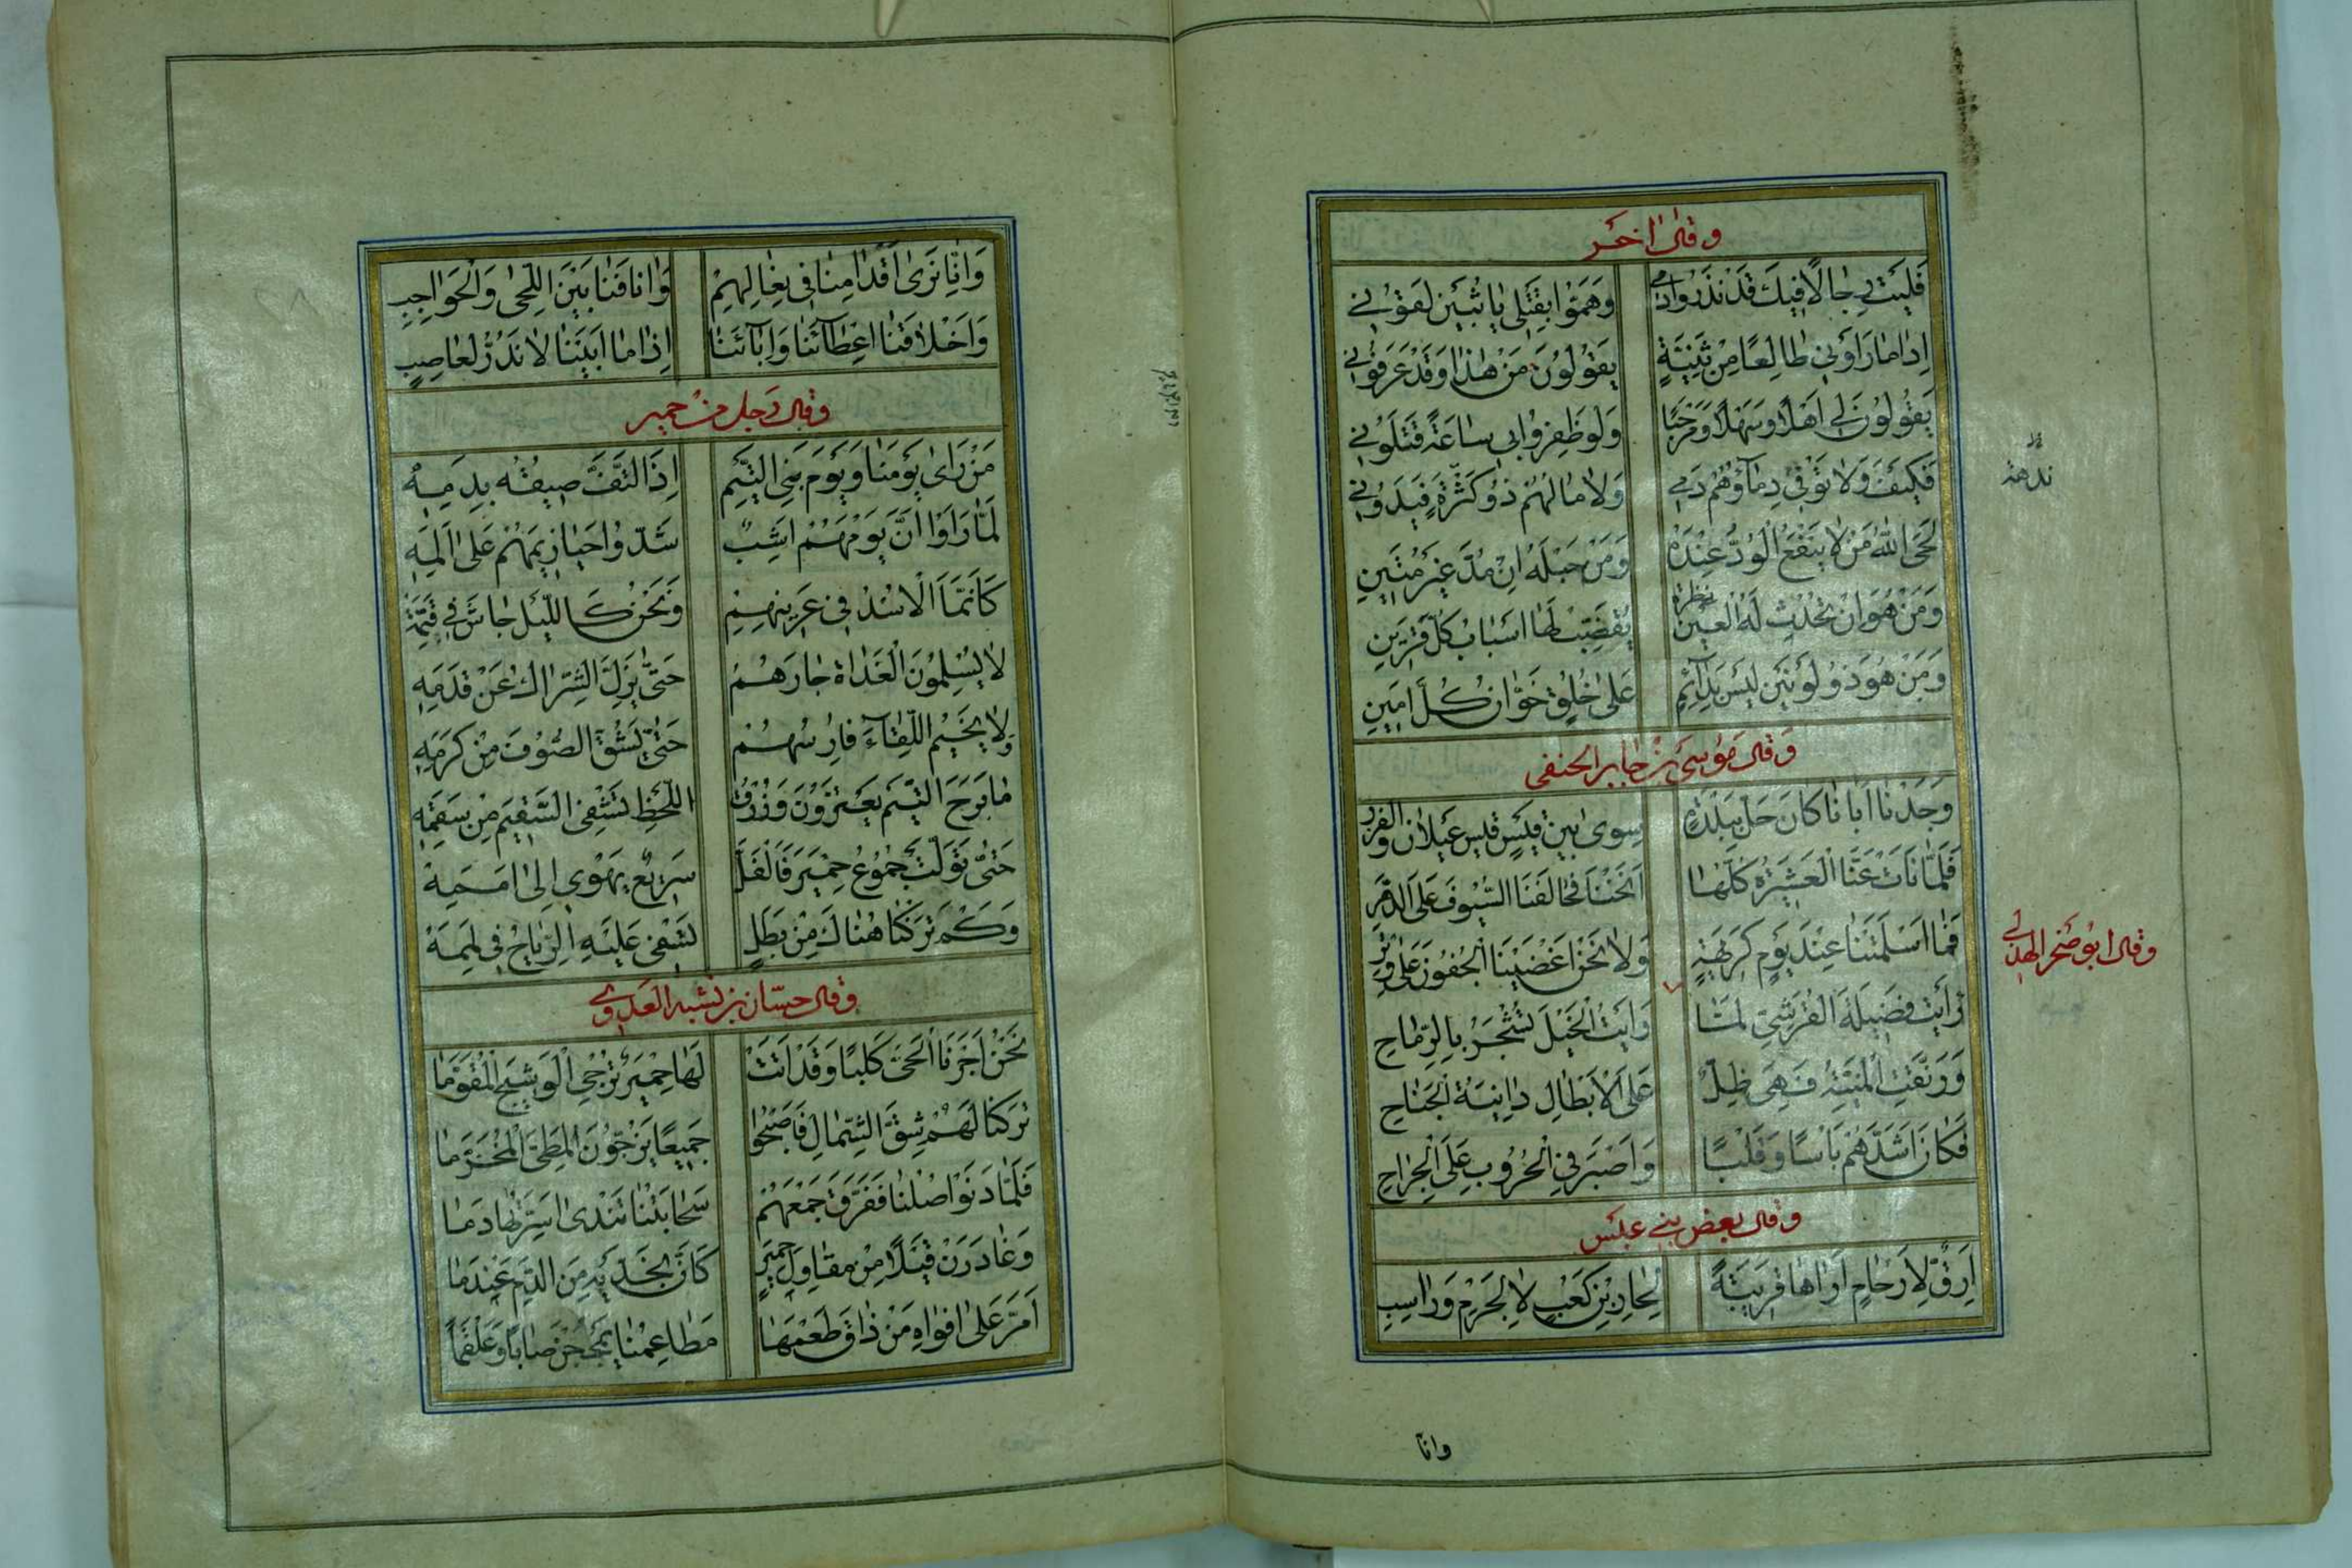 وقال اخر
فَلَيْتَ رِجَالًا فِيكَ قَدْ نَذَرُوا دَمِي وَهَمُّوا بِقَتْلِي يَا بُثَيْنَ لَقُونِي
اِذَا مَا رَاَوْنِي طَالِعًا مِنْ ثَنِيَّةٍ يَقُولُونَ مَنْ هٰذَا وَقَدْ عَرَفُونِي
يَقُولُونَ لِي اَهْلًا وَسَهْلًا وَمَرْحَبًا وَلَوْ ظَفِرُوا بِي سَاعَةً قَتَلُونِي
فَكَيْفَ وَلَا تُوفِي دِمَاؤُهُمْ دَمِي وَلَا مَالُهُمْ ذُو كَثْرَةٍ فَيَدُونِي
ندهة
لَحَى اللّٰهُ مَنْ لَا يَنْفَعُ الْوُدُّ عِنْدَهُ وَمَنْ حَبْلُهُ اِنْ مُدَّ غَيْرُ مَتِينِ
وَمَنْ هُوَ اِنْ تُحْدِثْ لَهُ الْعَيْنُ نظرة يُقَضِّبْ لَهَا اَسْبَابَ كُلِّ قَرِينِ
وَمَنْ هُوَ ذُو لَوْنَيْنِ لَيْسَ بِدَائِمٍ عَلَى خُلُقٍ خَوَّانُ كُلِّ اَمِينِ
وَقال موسى بن جابر الحنفى
وَجَدْنَا اَبَانَا كَانَ حَلَّ بِبَلْدَةٍ سِوًى بَيْنَ قَيْسٍ قَيْسِ عَيْلَانَ وَالْفِزْرِ
فَلَمَّا نَاَتْ عَنَّا الْعَشِيرَةُ كُلُّهَا اَنَخْنَا فَحَالَفْنَا السُّيُوفَ عَلَى الدَّهْرِ
فَمَا اَسْلَمَتْنَا عِنْدَ يَوْمِ كَرِيهَةٍ وَلَا نَحْنُ اَغْضَيْنَا الْجُفُونَ عَلَى وِتْرِ
وقال ابو صخر الهذلي
رَاَيْتُ فَضِيلَةَ الْقُرَشِيِّ لَمَّا رَاَيْتُ الْخَيْلَ تُشْجَرُ بِالرِّمَاحِ
وَرَنَّقَتِ الْمَنِيَّةُ فَهِيَ ظِلٌّ عَلَى الْاَبْطَالِ دَانِيَةُ الْجَنَاحِ
فَكَانَ اَشَدَّهُمْ بَاْسًا وَقَلْبًا وَاَصْبَرَ فِي الْحُرُوبِ عَلَى الْجِرَاحِ
وقال بعض بني عبس
اَرِقُّ لِاَرْحَامٍ اَرَاهَا قَرِيبَةً لِحَارِ بْنِ كَعْبٍ لَا لِجَرْمٍ وَرَاسِبِ
وانا
وَاِنَّا نَرَى اَقْدَامَنَا فِي نِعَالِهِمْ وَاٰنَافَنَا بَيْنَ اللِّحَى وَالْحَوَاجِبِ
وَاَخْلَاقَنَا اِعْطَاءَنَا وَاِبَاءَنَا اِذَا مَا اَبَيْنَا لَا نَدُرُّ لِعَاصِبِ
وقال رجل من حمير
مَنْ رَاَى يَوْمَنَا وَيَوْمَ بَنِي التَّيْمِ اِذَا الْتَفَّ صِيقُهُ بِدَمِهْ
لَمَّا رَاَوْا اَنَّ يَوْمَهُمْ اَشِبٌ شَدُّوا حَيَازِيمَهُمْ عَلَى اَلَمِهْ
كَاَنَّمَا الْاُسْدُ فِي عَرِينِهِمِ وَنَحْنُ كَاللَّيْلِ جَاشَ فِي قَتَمِهْ
لَا يُسْلِمُونَ الْغَدَاةَ جَارَهُمْ حَتَّى يَزِلَّ الشِّرَاكُ عَنْ قَدَمِهْ
وَلَا يَخِيمُ اللِّقَاءَ فَارِسُهُمْ حَتَّى يَشُقَّ الصُّفُوفَ مِنْ كَرَمِهْ
مَا بَرِحَ التَّيْمُ يَعْتَزُونَ وَزُرْقُ الْخَطِّ تَشْفِي السَّقِيمَ مِنْ سَقَمِهْ
حَتَّى تَوَلَّتْ جُمُوعُ حِمْيَرَ فَالْفَلُّ سَرِيعٌ يَهْوِي اِلَى اَمَمِهْ
وَكَمْ تَرَكْنَا هُنَاكَ مِنْ بَطَلٍ تَسْفِي عَلَيْهِ الرِّيَاحُ فِي لِمَمِهْ
وقال حسّان بن نشبه العدوي
نَحْنُ اَجَرْنَا الْحَيَّ كَلْبًا وَقَدْ اَتَتْ لَهَا حِمْيَرٌ تُزْجِي الْوَشِيجَ الْمُقَوَّمَا
تَرَكْنَا لَهُمْ شِقَّ الشِّمَالِ فَاَصْبَحُوا جَمِيعًا يُزَجُّونَ الْمَطِيَّ الْمُخَزَّمَا
فَلَمَّا دَنَوْا صُلْنَا فَفَرَّقَ جَمْعَهُمْ سَحَابَتُنَا تَنْدَى اَسِرَّتُهَا دَمَا
وَغَادَرْنَ قَيْلًا مِنْ مَقَاوِلِ حِمْيَرٍ كَاَنَّ بِخَدَّيْهِ مِنَ الدَّمِ عَنْدَمَا
اَمَرَّ عَلَى اَفْوَاهِ مَنْ ذَاقَ طَعْمَهَا مَطَاعِمُنَا يَمْجُجْنَ صَابًا وَعَلْقَمَا